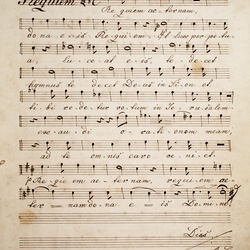 Requiem
Re quiem ae-ternam,
dona e-is Requi-em. Et lux perpe-tu-
a, lu-ce-at e-is, te-decet
hymnus te decet De-us in Si-on et
ti-bi re-detur votum in Je-ru-salem
ex-au-di o-ra-ti-onem meam,
ad te om-nis caro ve-ni-et.
Re-qui-em ae-ter-nam, requi-em ae-
ter-nam do-na e-is Do-mi-ne.
Dies